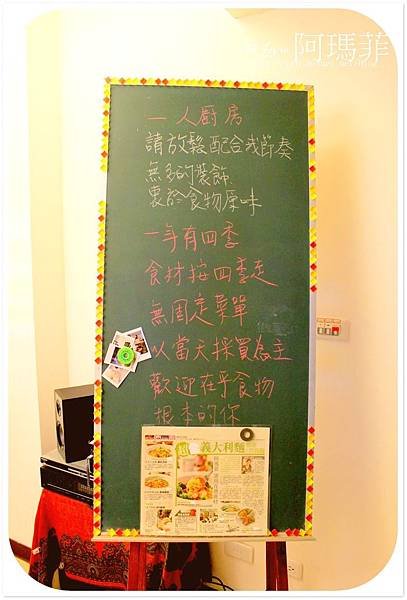 阿瑪菲
一人厨房
請放鬆配合我節奏
無多的裝飾
衷於食物原味
一年有四季
食材按四季走
無固定菜單
以當天採買為主
歡迎在乎食物
根本的你
義大利麵